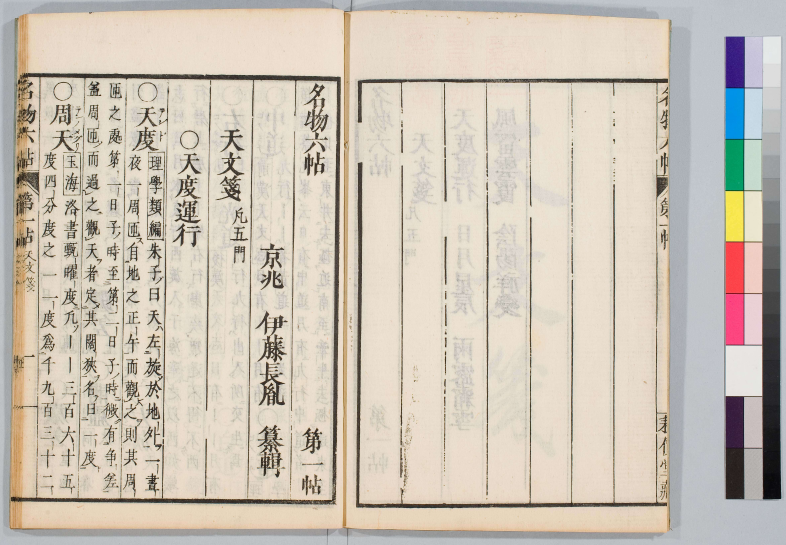 名物六帖 第一帖
京兆 伊藤長胤 纂輯
天文箋 凡五門
〇天度運行
〇天度 理學類編 朱子曰天左旋於地外一晝
夜周匝自地之正午而觀之則其周
匝之處第一日子時至第二日子時微有爭差
周匝而過之觀天者定其闊狹名曰一度
〇周天 玉海 洛書甄曜度凡一一三百六十五
度四分度之一一度爲千九百三十二
名物六帖 第一帖 天文箋 一
名物六帖 第一帖